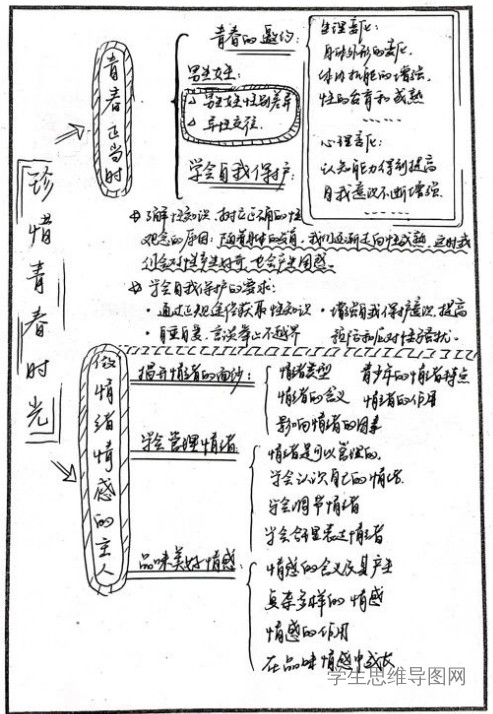 珍惜青春时光
青春正当时
青春的邀约:
生理变化:
身体外形的变化
体内机能的增强
性的发育和成熟
……
心理变化:
认知能力得到提高
自我意识不断增强
……
男生女生:
男生女生性别差异
异性交往
学会自我保护:
了解性知识、树立正确的性
观念的原因:随着身体的发育,我们逐渐走向性成熟,这时我
们会对性产生好奇,也会产生困惑
学会自我保护的要求:
·通过正规途径获取性知识
·自重自爱,言谈举止不越界
·增强自我保护意识,提高
预防和应对性骚扰。
做情绪情感的主人
揭开情绪的面纱:
情绪类型 青少年的情绪特点
情绪的含义 情绪的作用
影响情绪的因素
学会管理情绪
情绪是可以管理的
学会认识自己的情绪
学会调节情绪
学会合理表达情绪
品味美好情感:
情感的含义及其产生
复杂多样的情感
情感的作用
在品味情感中成长
学生思维导图网